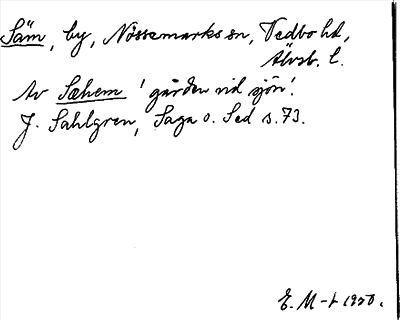 Säm, by, Nössemarks sn, Vedbo hd,
Älvsb. l.
Av Sæhem 'gården vid sjön'.
J. Sahlgren, Saga o. Sed s. 73.
E. M-t 1950.